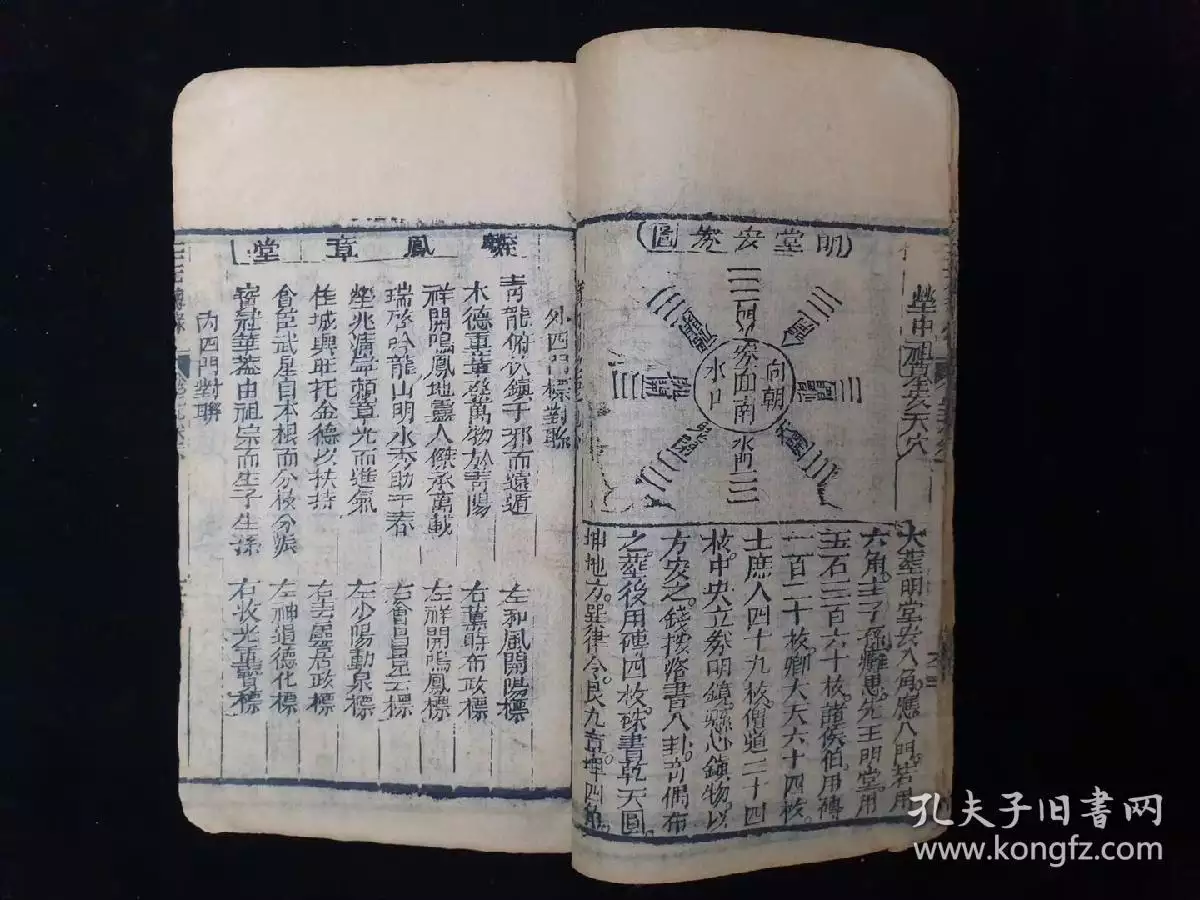 明堂安券圖
向朝
券面南
水口
水門
大葬明堂安八角。應八門。若用
六角。主子孫癡愚。先王明堂用
玉石三百六十枚。諸侯伯用磚
一百二十枚。卿大夫六十四枚。
士庶人四十九枚。僧道二十四
枚。中央立券明鏡。懸心鎮物。以
方安之。錢按洛書八卦。奇偶布
之。葬後用磚四枚。硃書乾天圓。
坤地方。巽律令。艮九章。埋四角。
鳳章堂
外四門標對聯
青龍俯伏鎮千邪而遠遁 左和風開陽標
木德重華發萬物於青陽 右薰時布政標
祥開鳴鳳地靈人傑承萬載 左祥開鳴鳳標
瑞啓吟龍山明水秀助千春 右會昌標
塋兆瀘寧賴章光而進氣 左少陽動泉標
佳城興旺托金德以扶持 右居政標
會臣武星自本根而分枝分派 左神道德化標
寶冠華蓋由祖宗而生子生孫 右收光重寶標
內四門對聯
孔夫子旧书网
www.kongfz.com